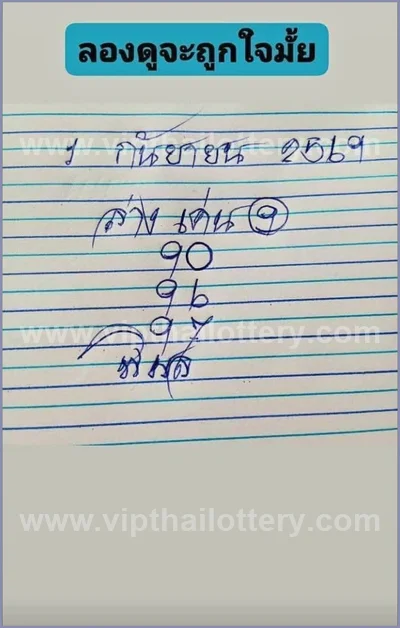 ลองดูจะถูกใจมั้ย
www.vipthailottery.com
1 กันยายน 2569
ล่าง เด่น 9
90
96
97
www.vipthailottery.com
www.vipthailottery.com